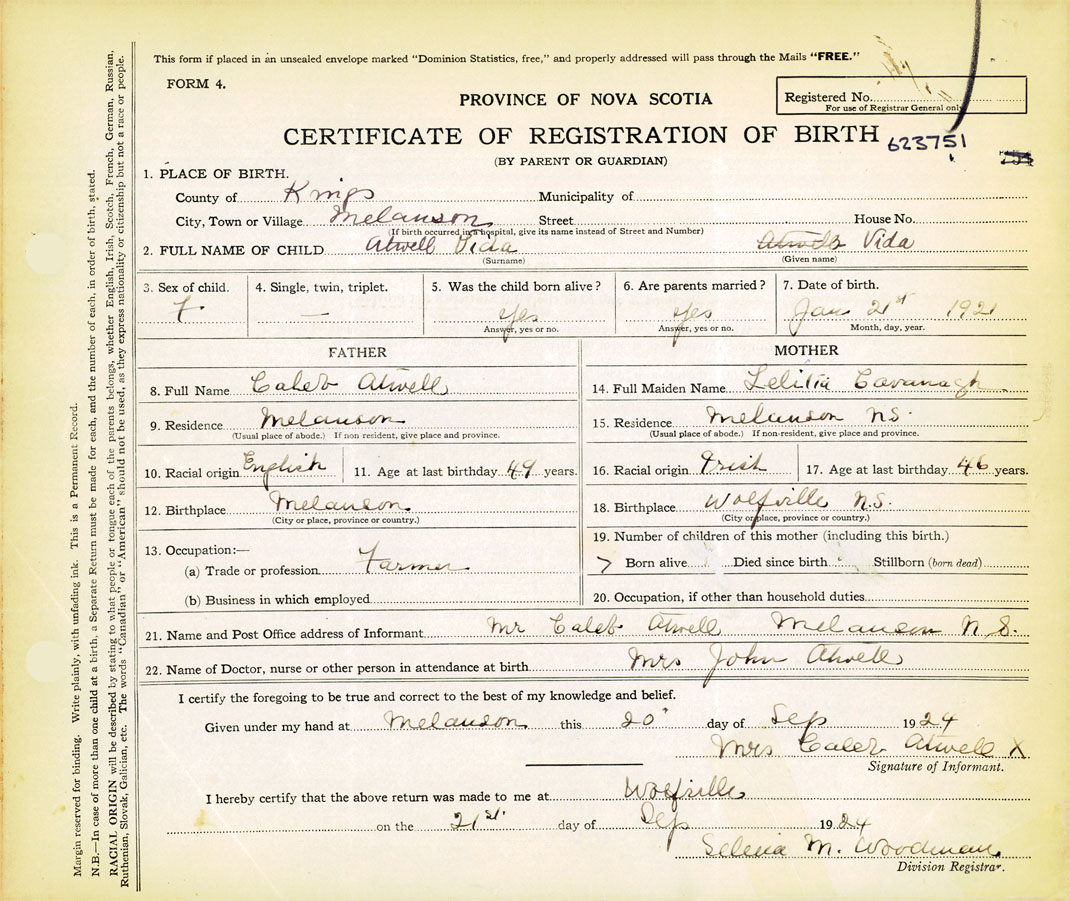 This form if placed in an unsealed envelope marked "Dominion Statistics, free," and properly addressed will pass through the Mails "FREE."
FORM 4.
PROVINCE OF NOVA SCOTIA
Registered No.
For use of Registrar General only
CERTIFICATE OF REGISTRATION OF BIRTH
623751
(BY PARENT OR GUARDIAN)
1. PLACE OF BIRTH.
County of Kings Municipality of
City, Town or Village Melanson Street House No.
(If birth occurred in a hospital, give its name instead of Street and Number)
2. FULL NAME OF CHILD Atwell Vida Atwell Vida
(Surname) (Given name)
3. Sex of child. 4. Single, twin, triplet. 5. Was the child born alive? 6. Are parents married? 7. Date of birth.
F — yes yes Jan 21st 1921
Answer, yes or no. Answer, yes or no. Month, day, year.
FATHER
8. Full Name Caleb Atwell
9. Residence Melanson
(Usual place of abode.) If non resident, give place and province.
10. Racial origin English 11. Age at last birthday 49 years.
12. Birthplace Melanson
(City or place, province or country.)
13. Occupation:—
(a) Trade or profession Farmer
(b) Business in which employed
MOTHER
14. Full Maiden Name Lelitia Cavanagh
15. Residence Melanson N.S.
(Usual place of abode.) If non-resident, give place and province.
16. Racial origin Irish 17. Age at last birthday 46 years.
18. Birthplace Wolfville N.S.
(City or place, province or country.)
19. Number of children of this mother (including this birth.)
7 Born alive Died since birth Stillborn (born dead)
20. Occupation, if other than household duties
21. Name and Post Office address of Informant Mr Caleb Atwell Melanson N.S.
22. Name of Doctor, nurse or other person in attendance at birth Mrs John Atwell
I certify the foregoing to be true and correct to the best of my knowledge and belief.
Given under my hand at Melanson this 20 day of Sep 1924
Mrs Caleb Atwell X
Signature of Informant.
I hereby certify that the above return was made to me at Wolfville
on the 21st. day of Sep 1924
Selina M. Woodman
Division Registrar.
Margin reserved for binding. Write plainly, with unfading ink. This is a Permanent Record.
N.B.—In case of more than one child at a birth, a Separate Return must be made for each, and the number of each, in order of birth, stated.
RACIAL ORIGIN will be described by stating to what people or tongue each of the parents belongs, whether English, Irish, Scotch, French, German, Russian,
Ruthenian, Slovak, Galician, etc. The words "Canadian" or "American" should not be used, as they express nationality or citizenship but not a race or people.